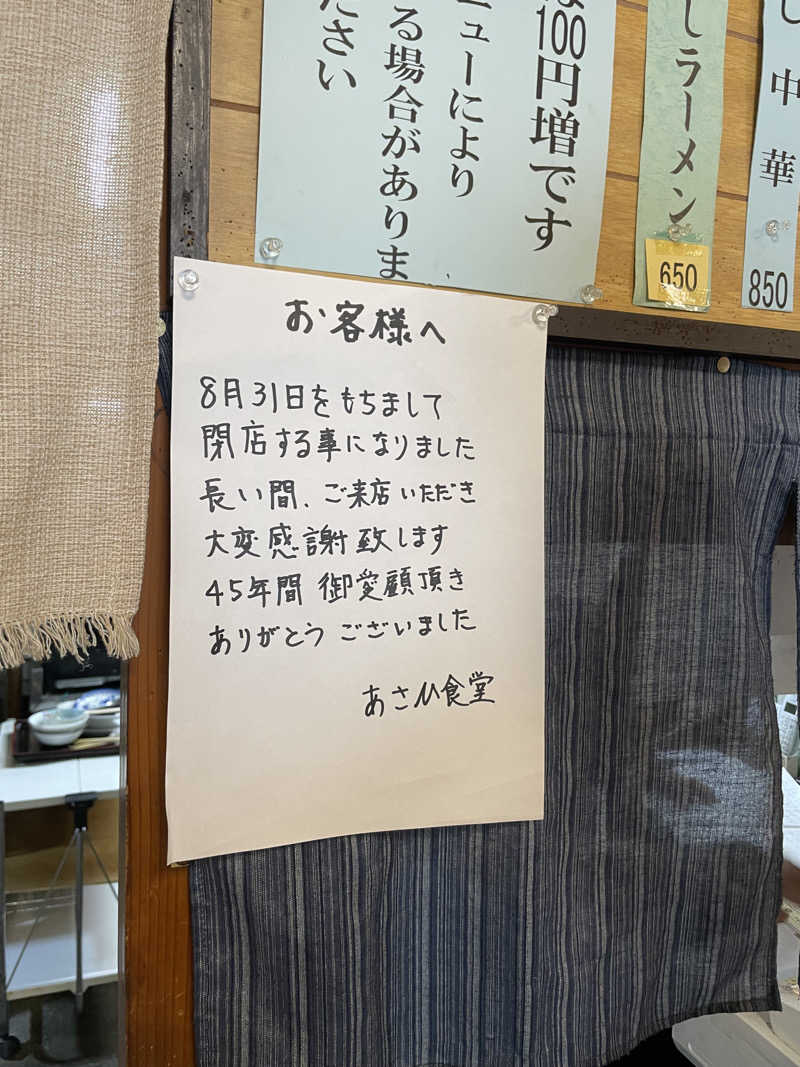 は100円増です
ニューにより
る場合がありま
ださい
しラーメン
650
し中華
850
お客様へ
8月31日をもちまして
閉店する事になりました
長い間、ご来店いただき
大変感謝致します
45年間 御愛顧頂き
ありがとうございました
あさひ食堂